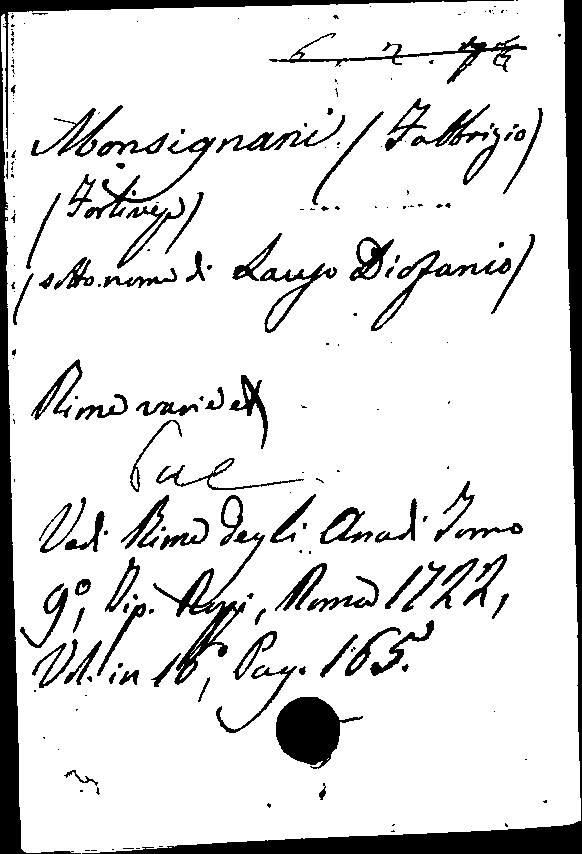 6. 2. 76
Monsignani (Fabbrizio)
(Forlivese)
(sotto nome di Lauso Diofanio)
Rime varie
Vedi Rime degli Arcadi Tomo
9º, Tip. Rossi, Roma 1722,
Vol. in 16º, Pag. 165.